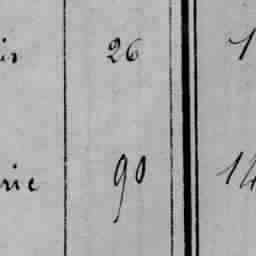 is 26 1
rie 90 14